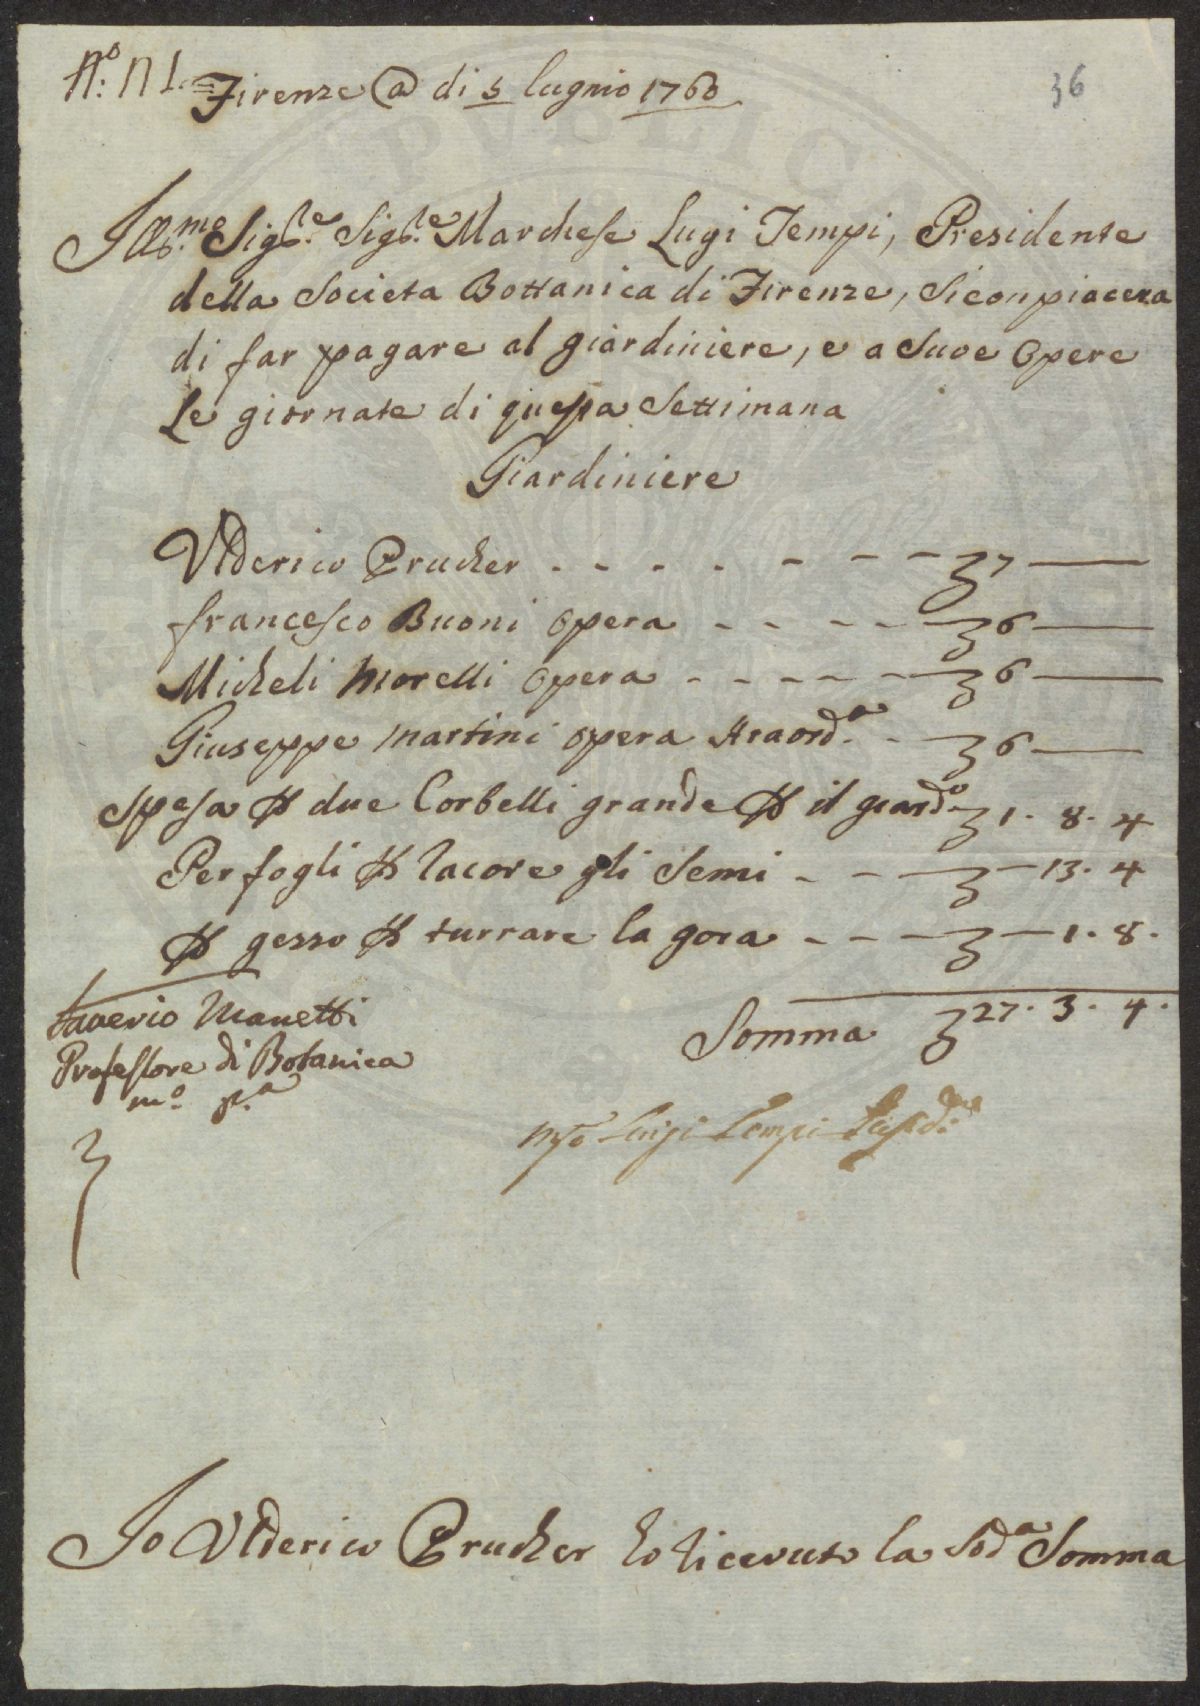 N.º II. Firenze @ di 5 lugnio 1760
36
Ill.mo Sig.re Sig.re Marchese Lugi Tempi, Presidente
della Societa Bottanica di Firenze, si conpiacera
di far pagare al giardiniere, e a suoe Opere
Le giornate di questa Settimana
Giardiniere
Vlderico Prucher . - - . . - - - 7 —
francesco Buoni opera - - - - 6 —
Micheli Morelli opera - - - - - 6 —
Giuseppe martini opera straord.a - 6 —
Spesa p due Corbelli grande p il giard.o 1. 8. 4
Per fogli p lacore gli Semi - - — 13. 4
p gesso p turrare la gora - - - — 1. 8.
Somma 27. 3. 4.
Saverio Manetti
Professore di Botanica
m.o p.a
Luigi Tempi
Io Vlderico Prucher ho ricevuto la Sod.a Somma